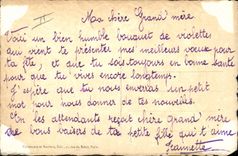 II
Ma chère Grand'mère
Voici un bien humble bouquet de violettes
qui vient te présenter mes meilleurs vœux pour
ta fête, et que tu sois toujours en bonne santé
pour que tu vives encore longtemps.
J'espère que tu nous enverras un petit
mot pour nous donner de tes nouvelles.
Con les attendants reçoit chère grand'mère
de bons baisers de ta petite fille qui t'aime
Jeannette